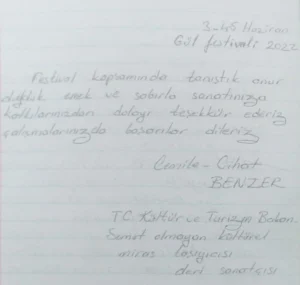 3-4-5 Haziran
Gül festivali 2022
Festival kapsamında tanıştık onur
duyduk emek ve sabırla sanatınıza
katkılarınızdan dolayı teşekkür ederiz
çalışmalarınızda başarılar dileriz
Cemile - Cihat
BENZER
T.C. Kültür ve Turizm Bakan.
Somut olmayan kültürel
miras taşıyıcısı
deri sanatçısı